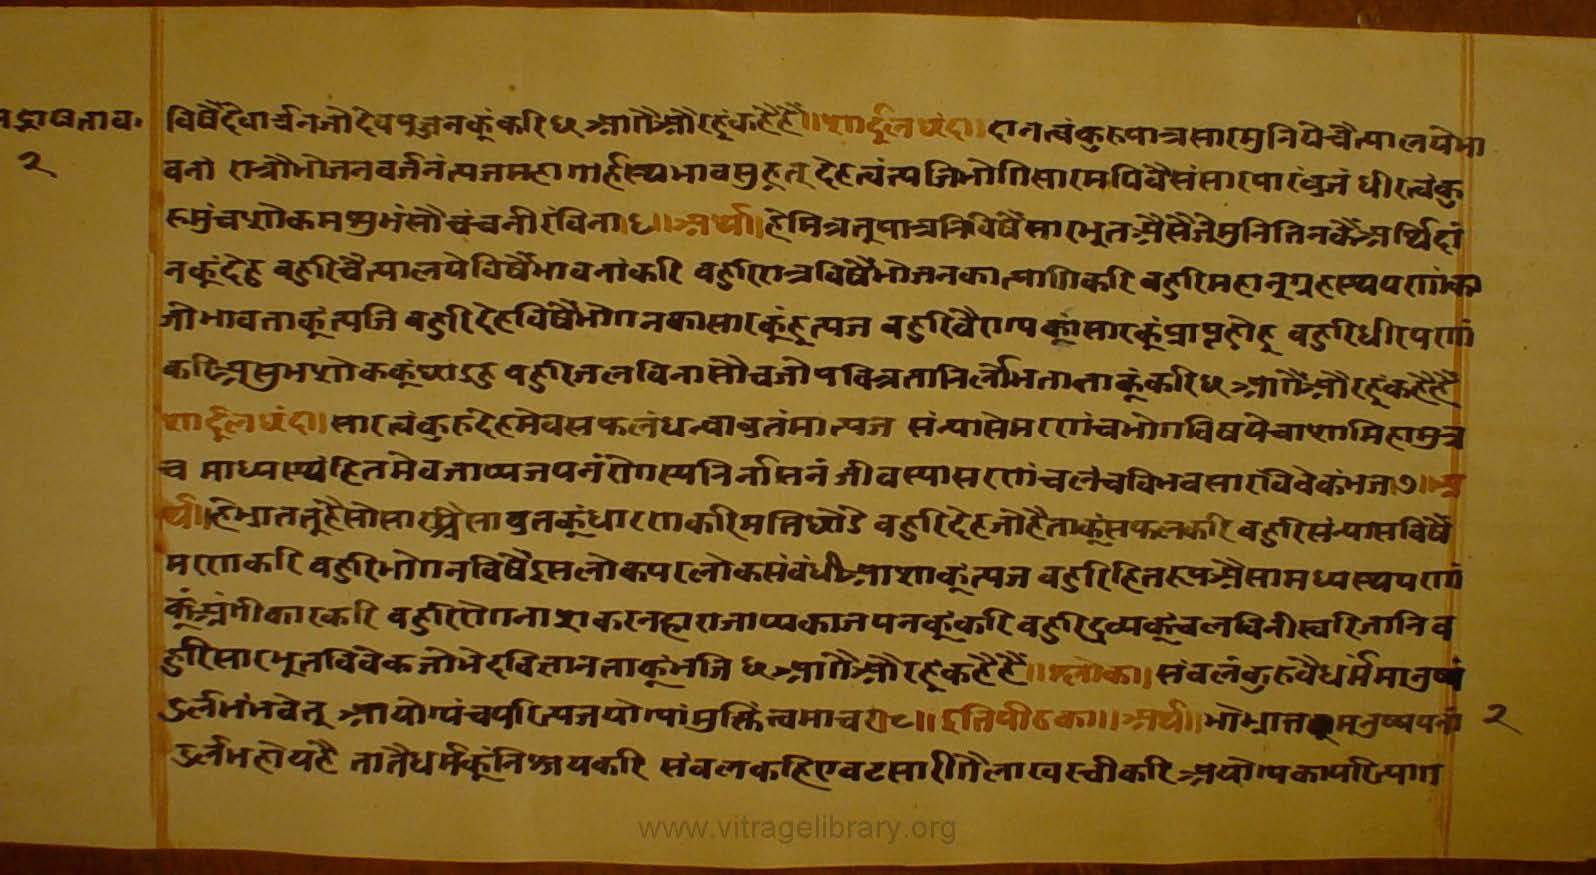 २
विषैं देवार्चन जो देवपूजन कूं करि ५ आगैं और हूं कहै हैं ॥ शार्दूल छंद ॥ दानत्वं कुरु पात्रसारमुनिये चैत्यालये भा
वनां रात्रौ भोजनवर्जनं त्यज महागार्हस्थ्यभावसुहृत् देहत्वं त्यजि भोगसारमपि वै संसारपारं व्रजं धीरत्वं कु
रु मुंच शोकमशुभं सौचं च नीरं विना ६ ॥ अर्थ ॥ हे मित्र तू पात्रनि विषैं सारभूत अैसै जे मुनि तिनकै अर्थि दा
न कूं देहु बहुरि चैत्यालये विषैं भावनां करि बहुरि रात्र विषैं भोजन का त्याग करि बहुरि महान् गृहस्थपणां का
जो भाव ता कूं त्यजि बहुरि देह विषैं भोगन का सार कूं हू त्यज बहुरि वैराग्य का सार कूं प्राप्त होहू बहुरि धीरपणां
करि असुभ शोक कूं छांडहु बहुरि जल विना सौच जो पवित्रता निर्लोभता ता कूं करि ६ आगैं और हूं कहै हैं
शार्दूल छंद ॥ सारत्वं कुरु देहमेव सफलं धत्वा व्रतं मा त्यज संन्यासे मरणं च भोगविषये चाशामिहामुत्र
च माध्यस्थ्यं हितमेव जाप्यजपनं रोगस्य निर्नासनं जीवस्यासरणं च लं च विभवसारं विवेकं भज ७ ॥ अ
र्थ ॥ हे भ्रात तू है सो सार अैसा व्रत कूं धारण करि मति छोडे बहुरि देह जो है ता कूं सफल करि बहुरि संन्यास विषैं
मरण करि बहुरि भोगन विषैं इस लोक परलोक संबंधी आशा कूं त्यज बहुरि हितरूप अैसा मध्यस्थपणां
कूं अंगीकार करि बहुरि रोग नाश करनहारा जाप्य का जपन कूं करि बहुरि द्रव्य कूं चल विनीस्वरि जानि ब
हुरि सारभूत विवेक जो भेदविज्ञान ता कूं भजि ७ आगैं और हू कहै हैं ॥ श्लोक ॥ संबलं कुरु वै धर्मं मानुष्यं
दुर्लभं भवेत् अयोग्यं च परित्यज योग्यां मुक्तिं त्वमाचर ८ ॥ इति पीठका ॥ अर्थ ॥ भो भ्रात मनुष्यपनां २
दुर्लभ होय है तातै धर्म कूं निश्चय करि संबल कहिए वटसारी गैला खरची करि अयोग्य का परित्याग
www.vitragelibrary.org